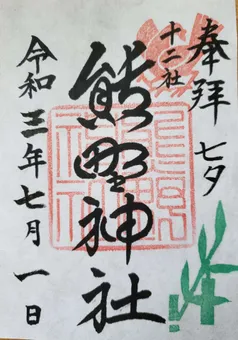 奉拝 七夕
十二社
熊野神社
令和三年七月一日
熊野神社